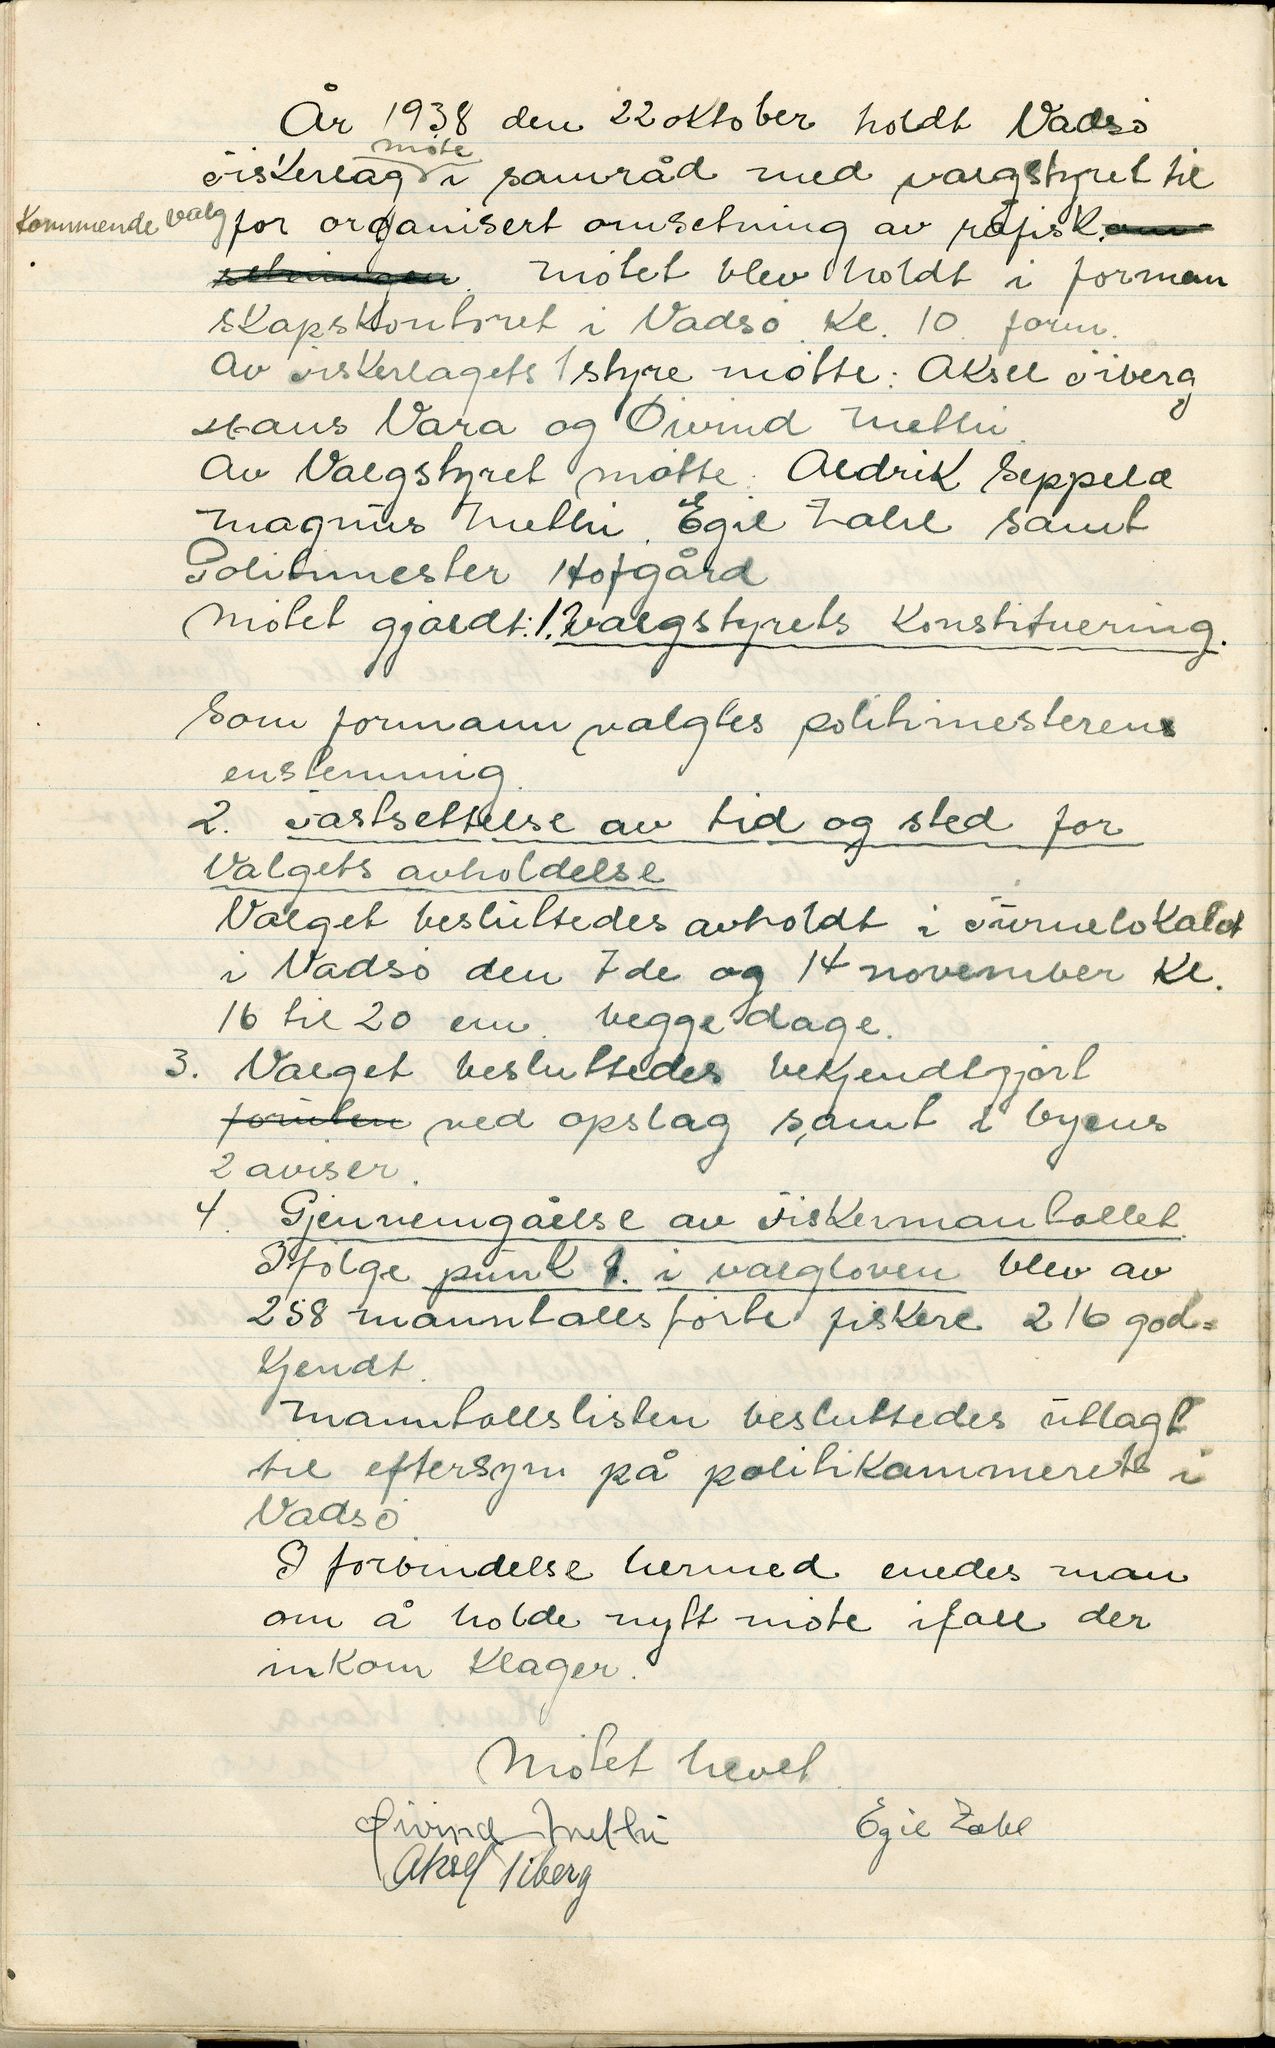 År 1938 den 22 oktober holdt Vadsø
møte
Fiskerlag i samråd med valgstyret til
kommende valg for organisert omsetning av råfisk. om
setningen. Møtet blev holdt i forman
skapskontoret i Vadsø kl. 10 form.
Av Fiskerlagets styre møtte: Aksel Tiberg
Hans Vara og Øivind Methi
Av Valgstyret møtte: Aldrik Seppelä
Magnus Methi, Egil Zahl samt
Politimester Hofgård
Møtet gjaldt: 1. Valgstyrets Konstituering.
Som formann valgtes politimesteren
enstemmig.
2. Fastsettelse av tid og sted for
Valgets avholdelse
Valget besluttedes avholdt i Turnelokalet
i Vadsø den 7de og 14 november kl.
16 til 20 em. begge dage.
3. Valget besluttedes bekjendtgjort
foruten ved opslag samt i byens
2 aviser.
4. Gjennemgåelse av Fiskermantallet
Ifølge punkt 1. i valgloven blev av
258 manntallsførte fiskere 216 god=
kjendt.
Manntallslisten besluttedes utlagt
til eftersyn på politikammeret i
Vadsø
I forbindelse hermed enedes man
om å holde nytt møte ifall der
inkom klager.
Møtet hevet
Øivind Methi Egil Zahl
Aksel Tiberg